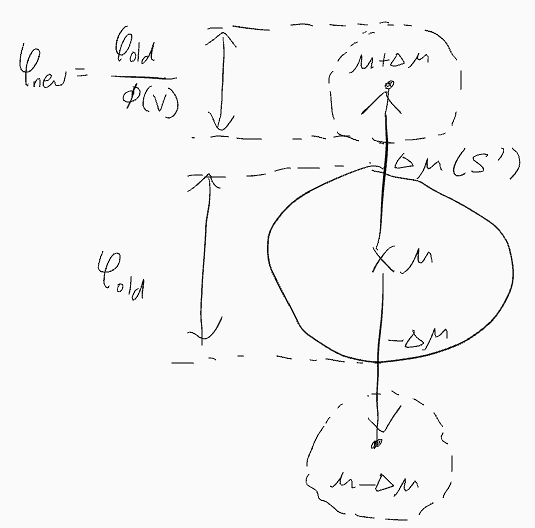 φnew = φold / ϕ(V)
μ+Δμ
Δμ(S')
μ
φold
-Δμ
μ-Δμ